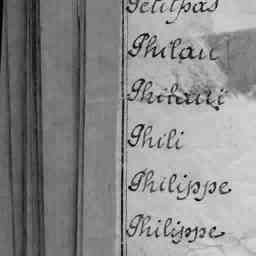 Petitpas
Philau
Philani
Phili
Philippe
Philippe